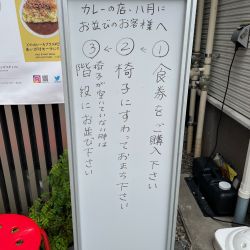 カレーの店・八月に
お並びのお客様へ
① 食券をご購入下さい
② 椅子にすわっておまち下さい
③ 椅子が空いていない時は
階段にお並び下さい